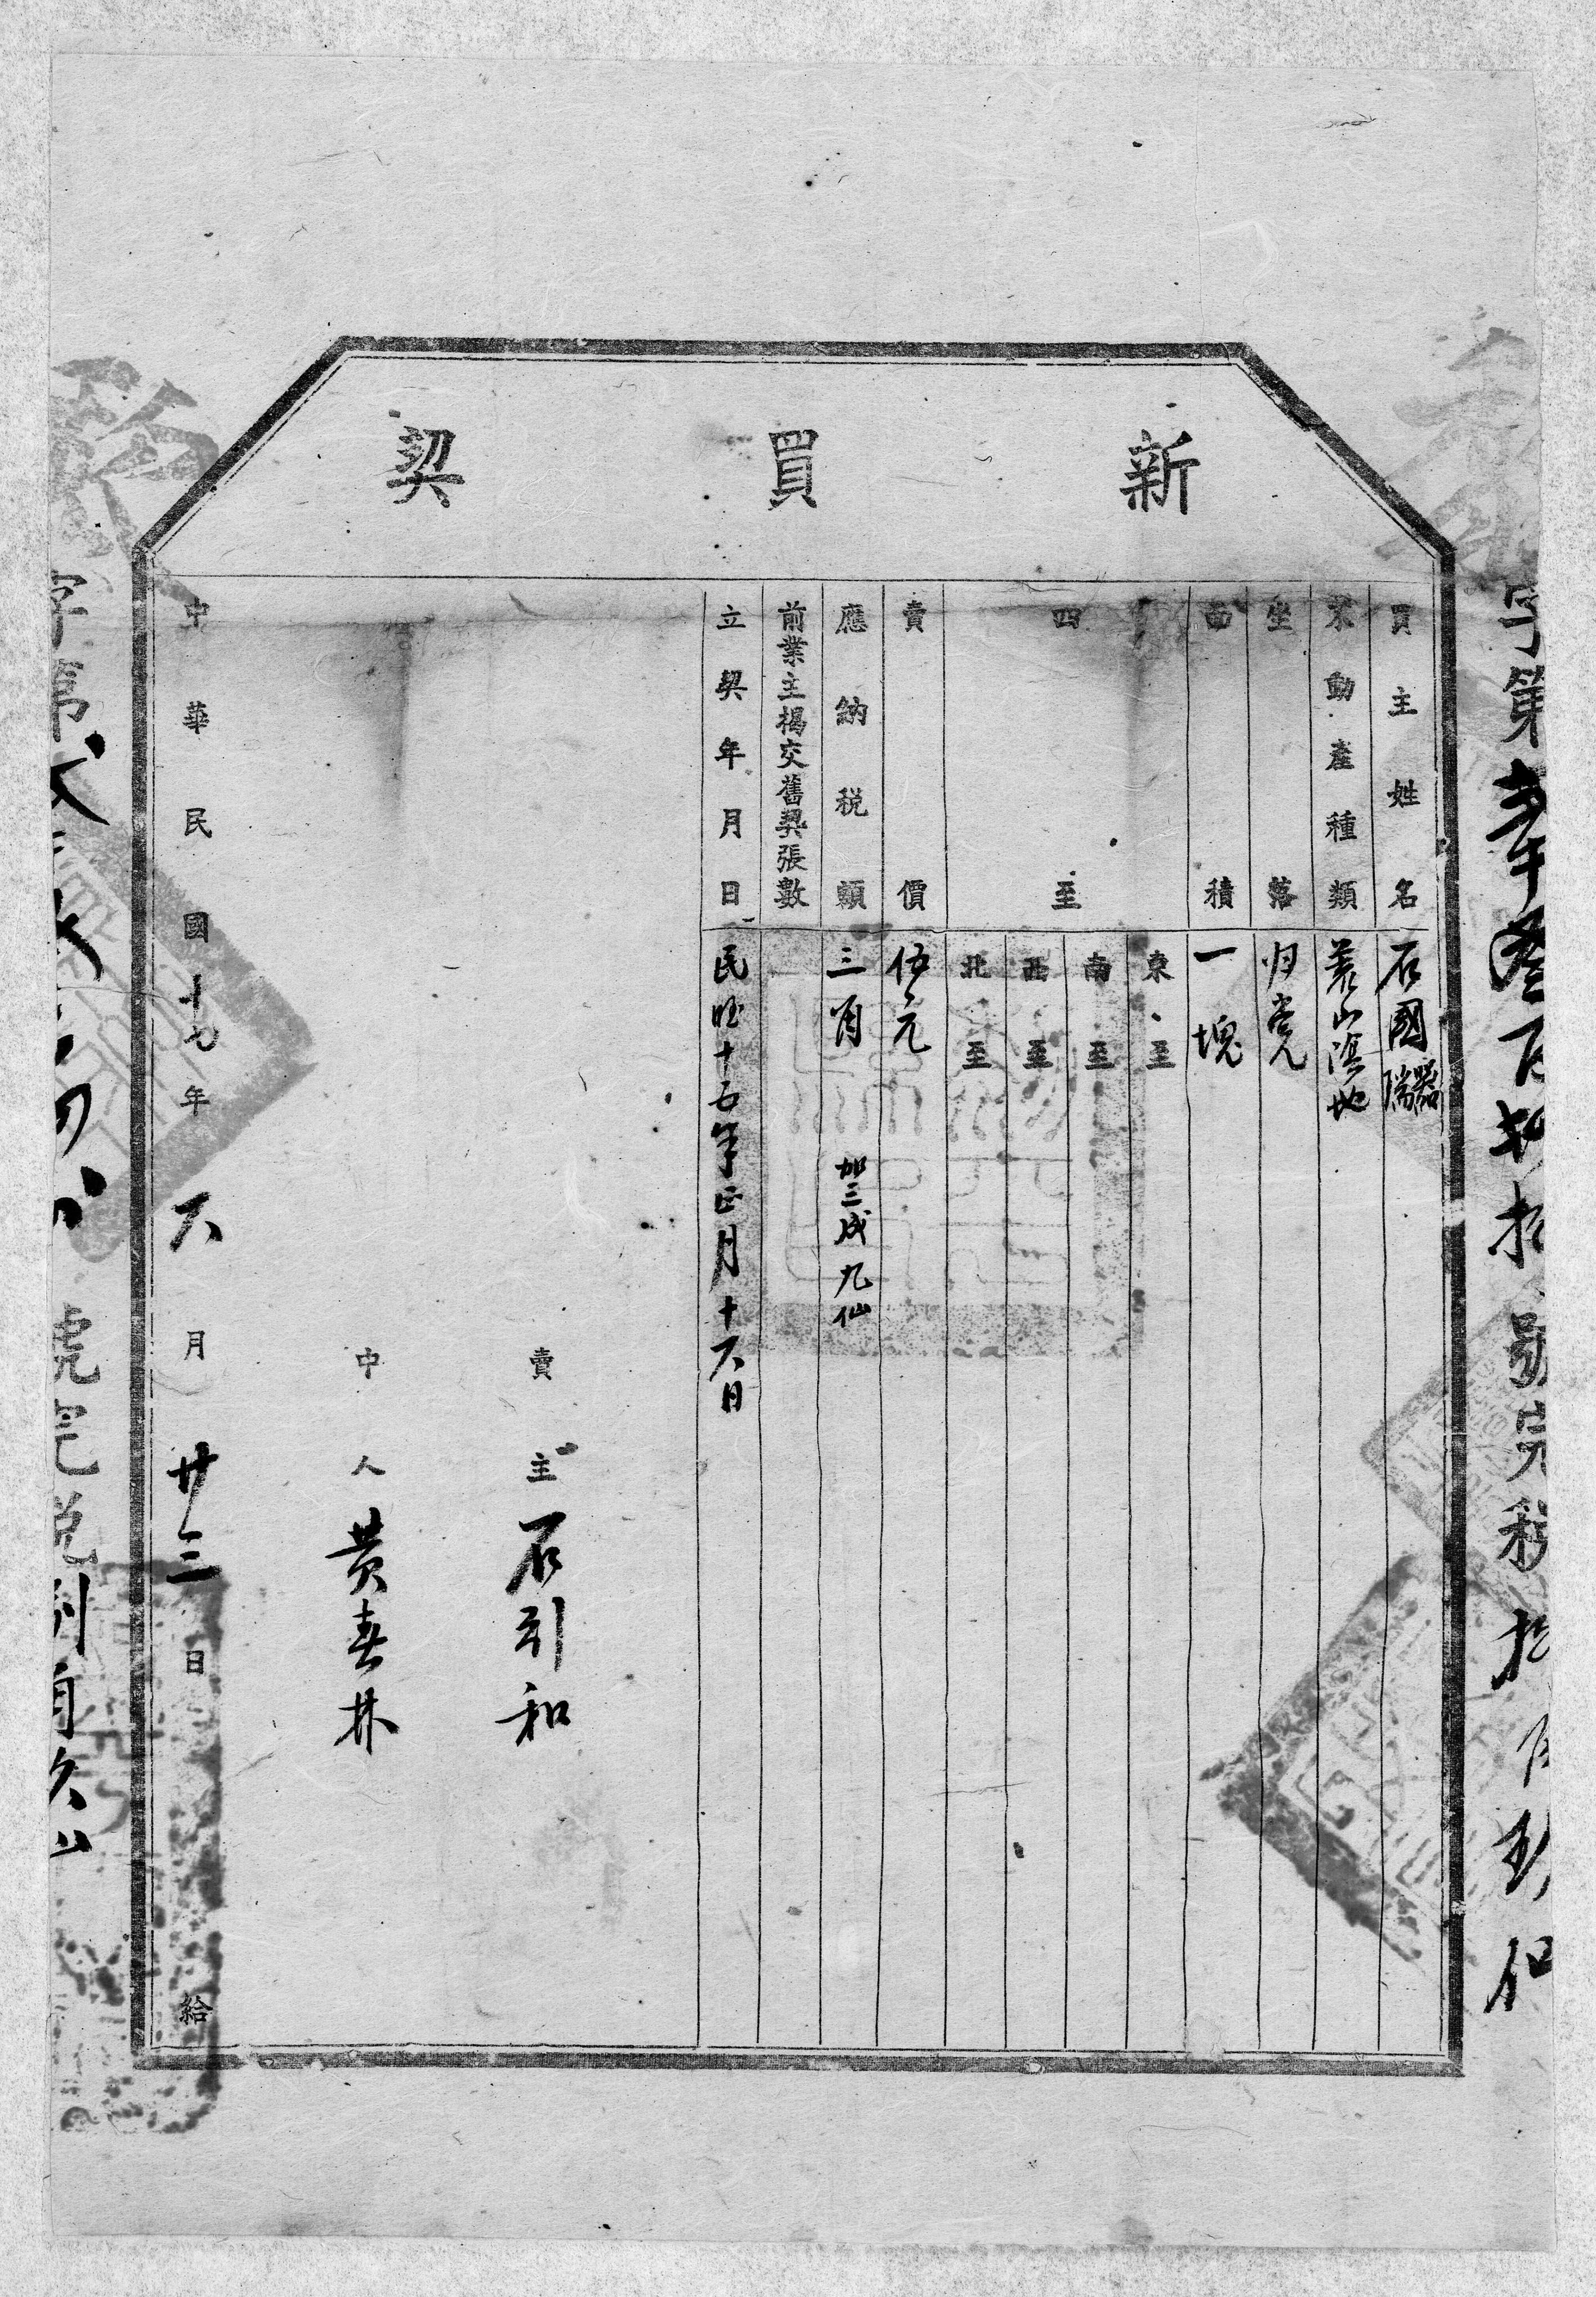 新買契
字第
號完稅
買主姓名 石國瑞 器
不動產種類 荒山隂地
坐落 归党
面積 一塊
四至 東至 南至 西至 北至
賣價 伍元
應納稅額 三角 加三成九仙
前業主揭交舊契張數
立契年月日 民國十五年正月十六日
賣主 石引和
中人 黃春林
中華民國十七年六月廿三日給
字第
號完稅